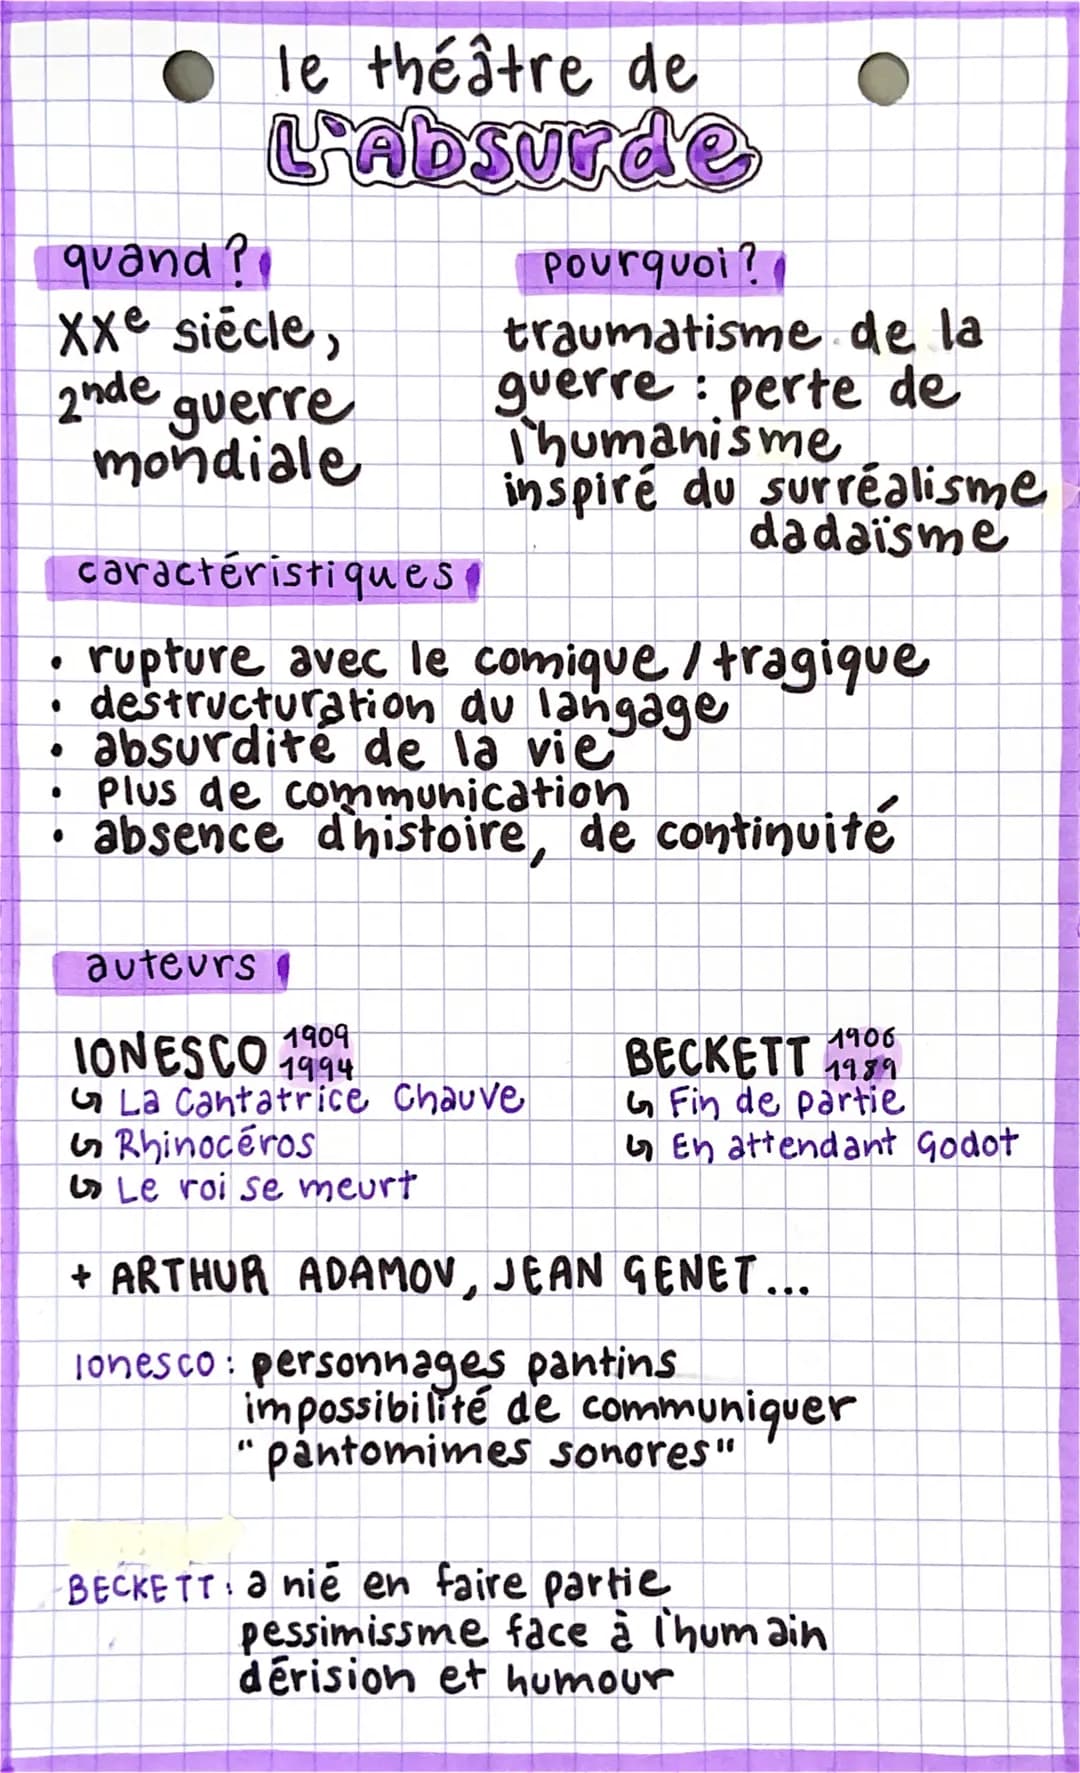 le théâtre de
L'Absurde
quand ?
XXe siècle,
2nde guerre
mondiale
pourquoi ?
traumatisme de la
guerre : perte de
l'humanisme
inspiré du surréalisme
dadaïsme
caractéristiques
• rupture avec le comique / tragique
• destructuration du langage
• absurdité de la vie
• Plus de communication
• absence d'histoire, de continuité
auteurs
IONESCO 1909
1994
↳ La Cantatrice Chauve
↳ Rhinocéros
↳ Le roi se meurt
BECKETT 1906
1989
↳ Fin de partie
↳ En attendant Godot
+ ARTHUR ADAMOV, JEAN GENET...
Ionesco : personnages pantins
impossibilité de communiquer
"pantomimes sonores"
BECKETT : a nié en faire partie
pessimissme face à l'humain
dérision et humour